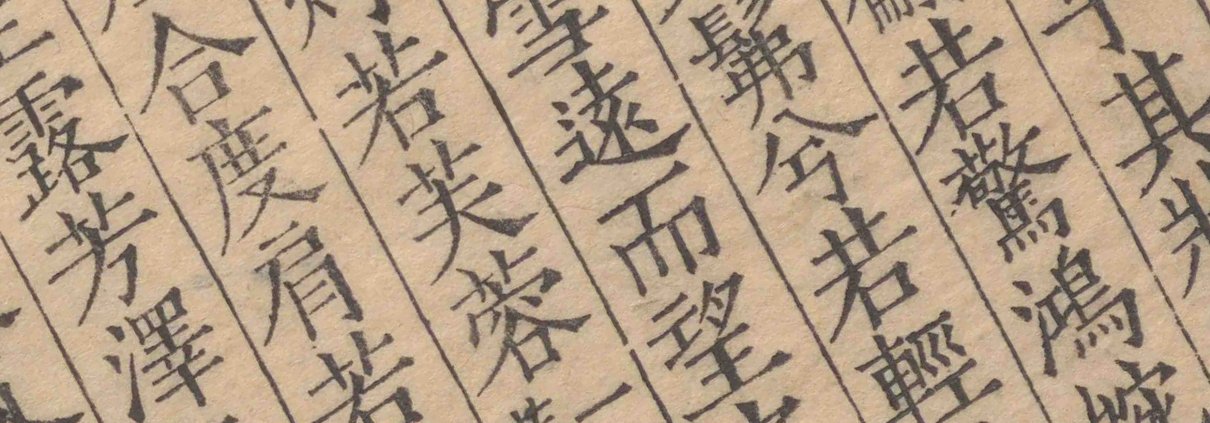 其
若驚鴻
髴兮若輕
雪遠而望
若芙蓉
合度肩若
露芳澤